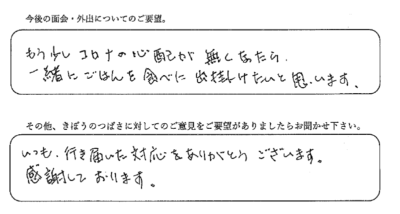 今後の面会・外出についてのご要望。
もう少しコロナの心配が無くなったら、
一緒にごはんを食べに出掛けたいと思います。
その他、きぼうのつばさに対してのご意見をご要望がありましたらお聞かせ下さい。
いつも、行き届いた対応をありがとうございます。
感謝しております。